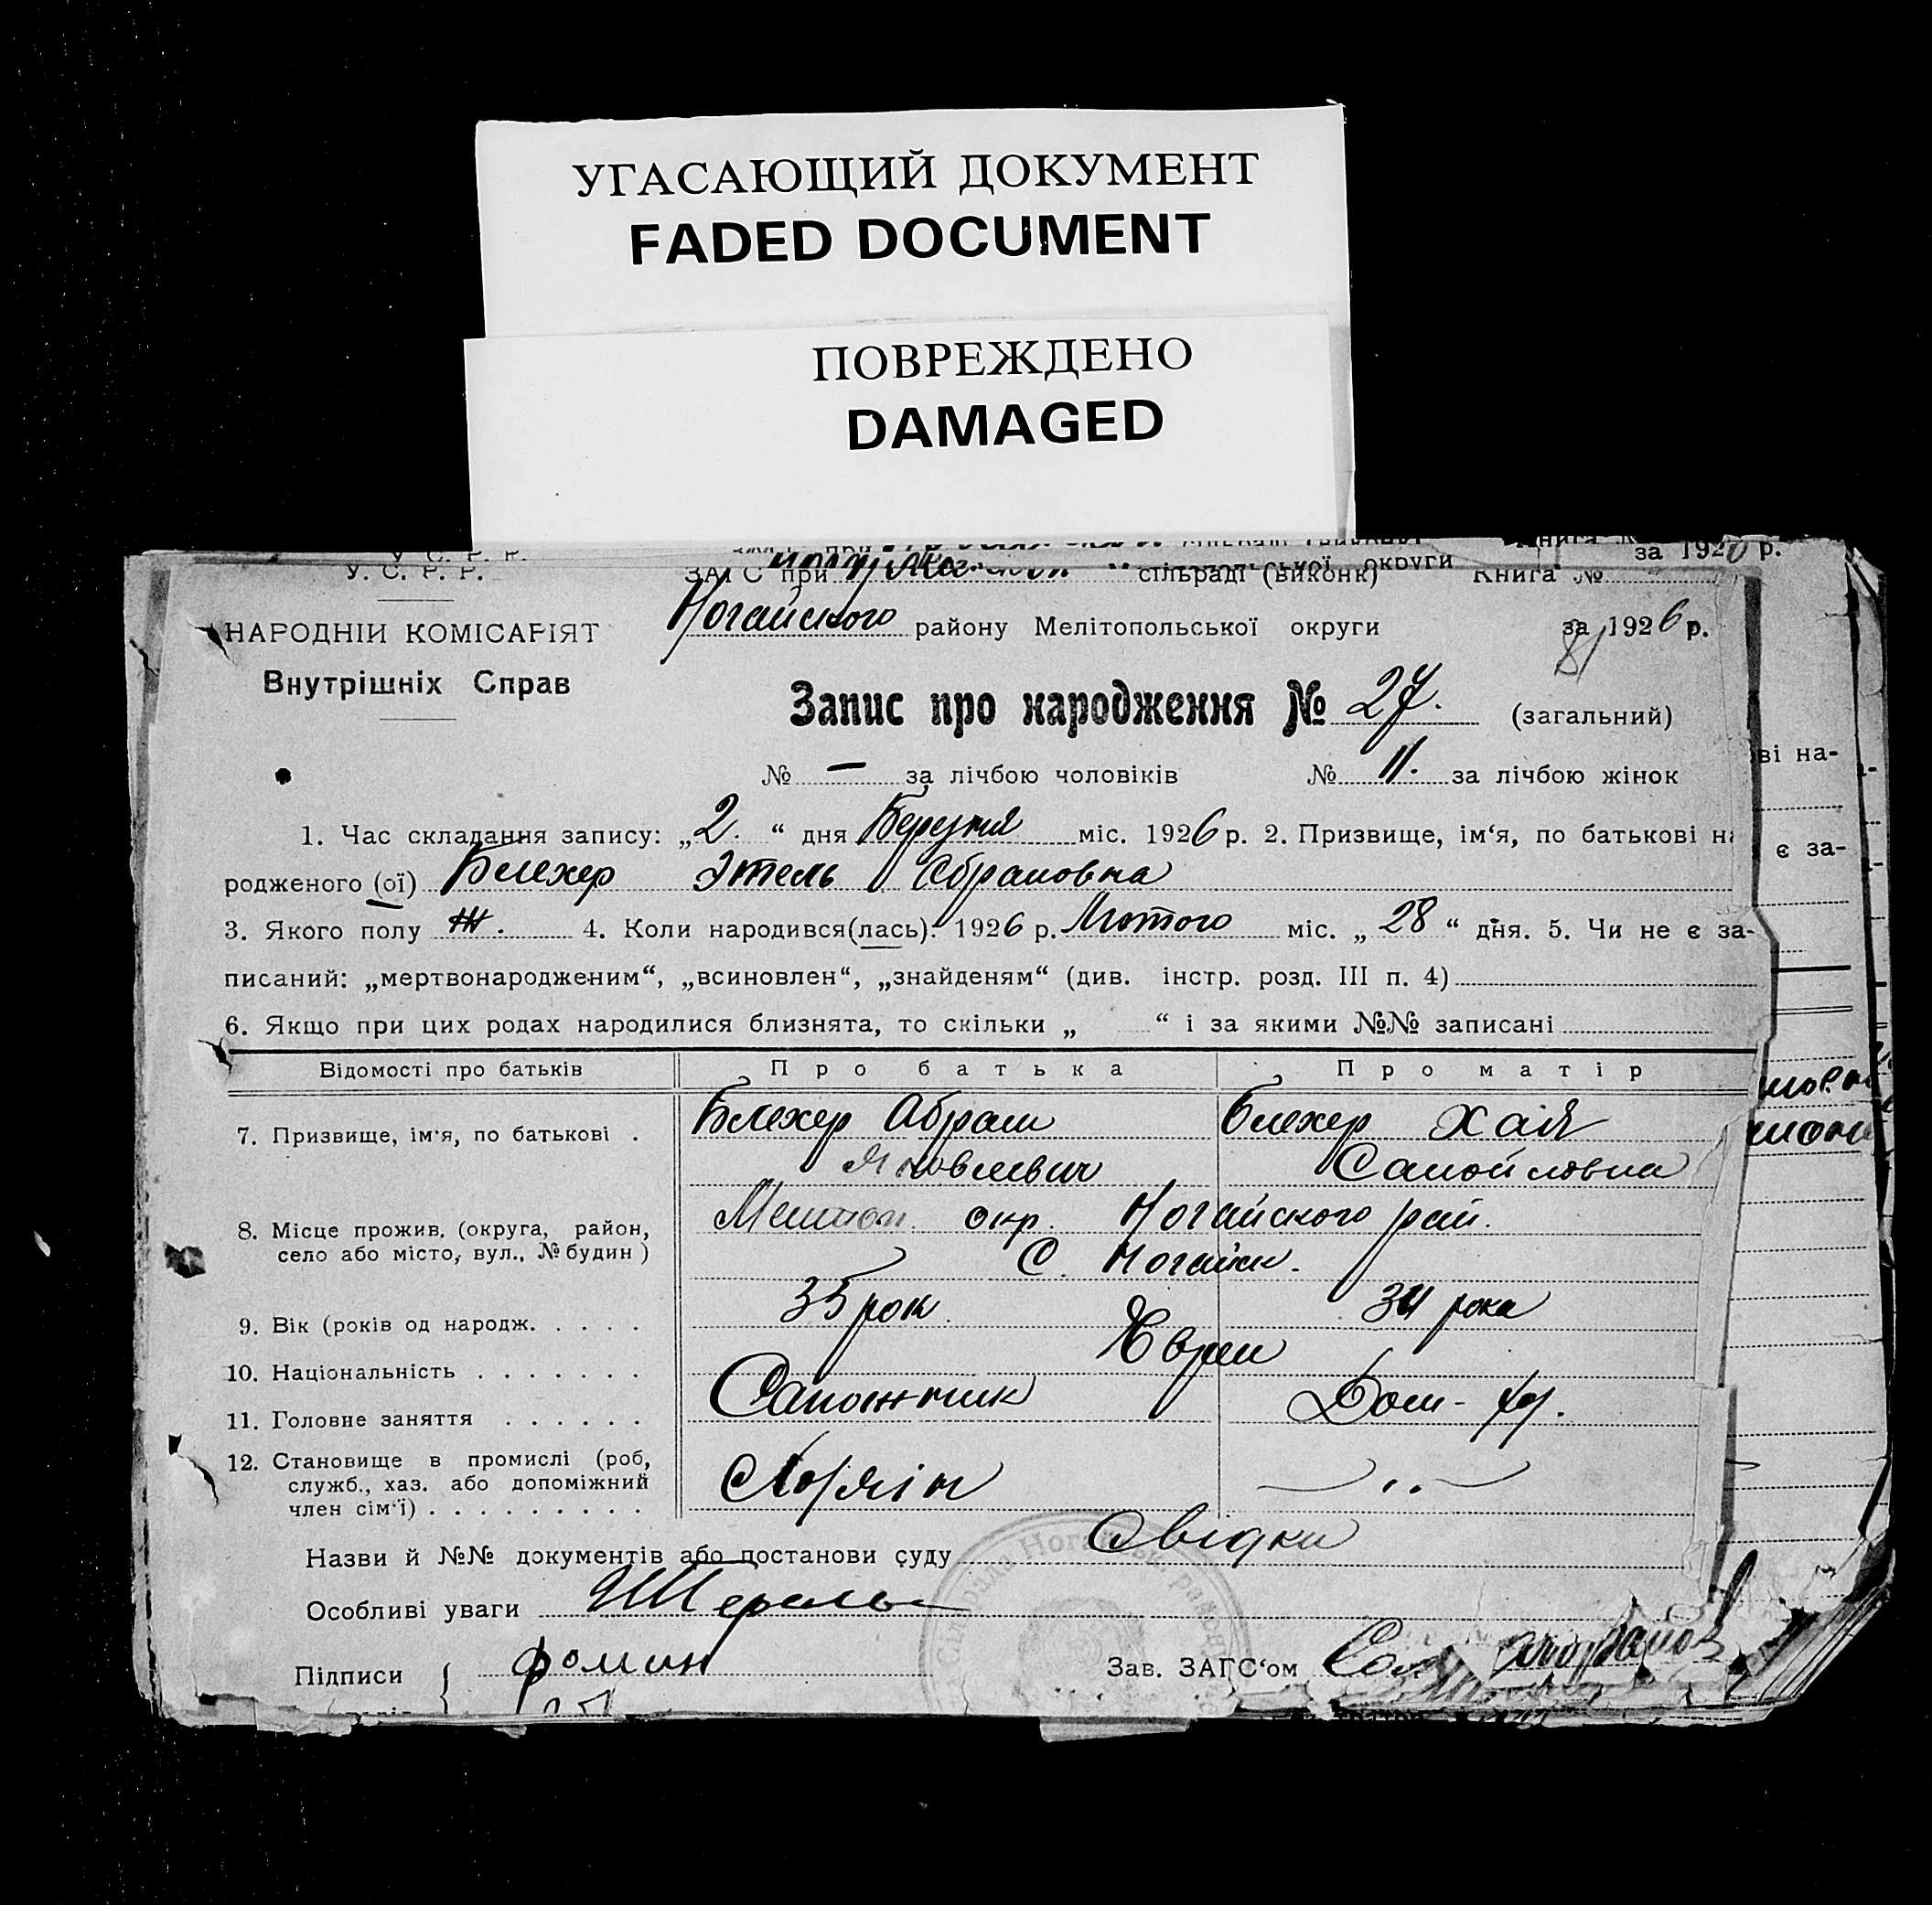 УГАСАЮЩИЙ ДОКУМЕНТ
FADED DOCUMENT
ПОВРЕЖДЕНО
DAMAGED
за 1926 р.
У. С. Р. Р.
ЗАГС при сільраді (виконк) Книга №
НАРОДНІЙ КОМІСАРІЯТ
Ногайского району Мелітопольської округи за 1926 р.
81
Внутрішніх Справ
Запис про народження № 27. (загальний)
№ — за лічбою чоловіків № 11. за лічбою жінок
1. Час складання запису: „2.“ дня Березня міс. 1926 р. 2. Призвище, ім‘я, по батькові на
родженого (ої) Блехер Этель Абрамовна
3. Якого полу Ж. 4. Коли народився(лась): 1926 р. Лютого міс. „28“ дня. 5. Чи не є за-
писаний: „мертвонародженим“, „всиновлен“, „знайденям“ (див. інстр. розд. III п. 4)
6. Якщо при цих родах народилися близнята, то скільки „ “ і за якими №№ записані
Відомості про батьків Про батька Про матір
7. Призвище, ім‘я, по батькові . Блехер Абрам Блехер Хая
Яковлевич Самойловна
8. Місце прожив. (округа, район, Мелитоп. окр. Ногайского рай.
село або місто, вул., № будин) С. Ногайск.
9. Вік (років од народж. . . . . 35 рок. 34 рока
10. Національність . . . . . . . Євреи
11. Головне заняття . . . . . . Сапожник Дом-
12. Становище в промислі (роб,
служб., хаз. або допоміжний Хазяін — . . —
член сім‘ї) . . . . . . . . .
Назви й №№ документів або постанови суду Свідки
Особливі уваги
Підписи { Фомин Зав. ЗАГС‘ом